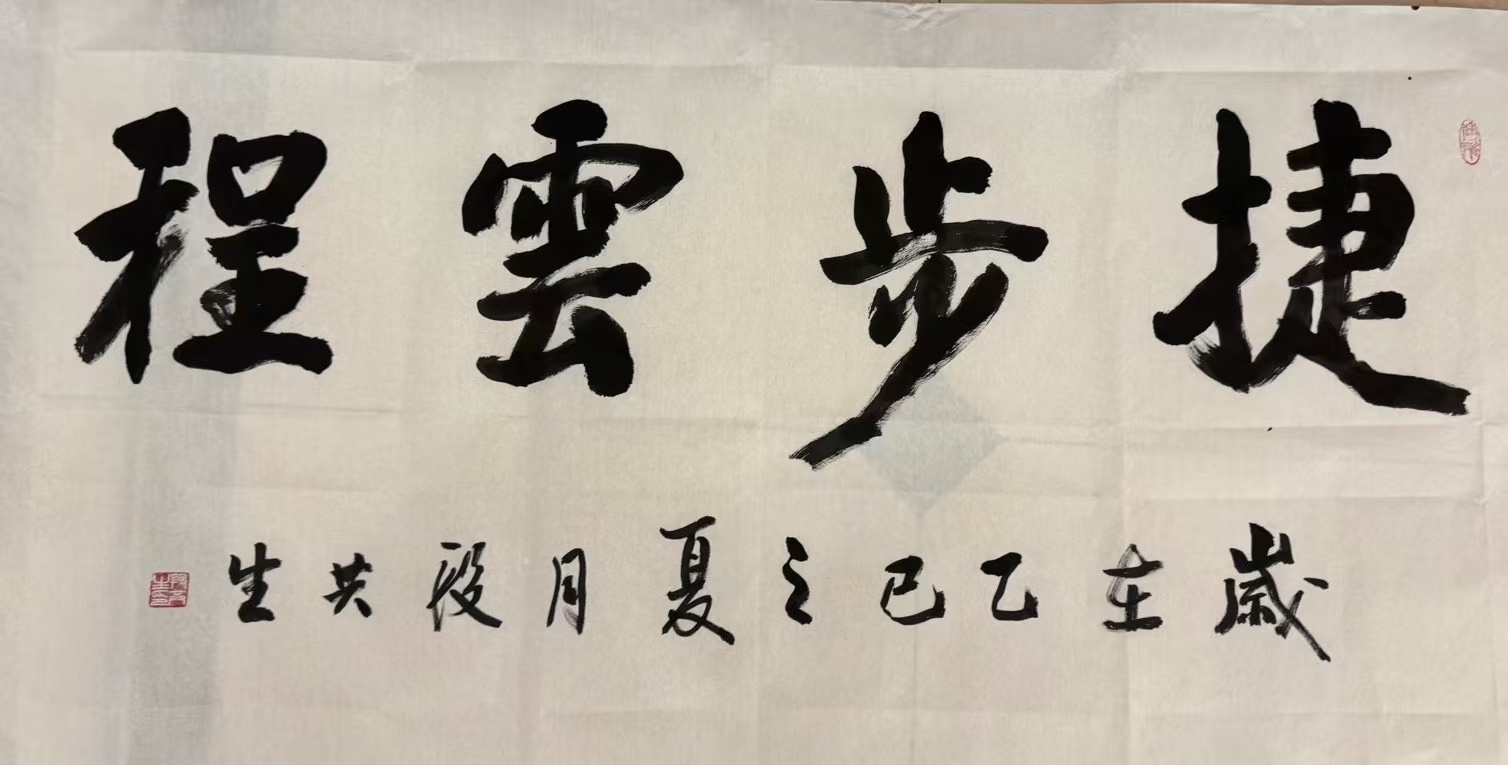 捷步雲程
歲在乙巳之夏月段共生